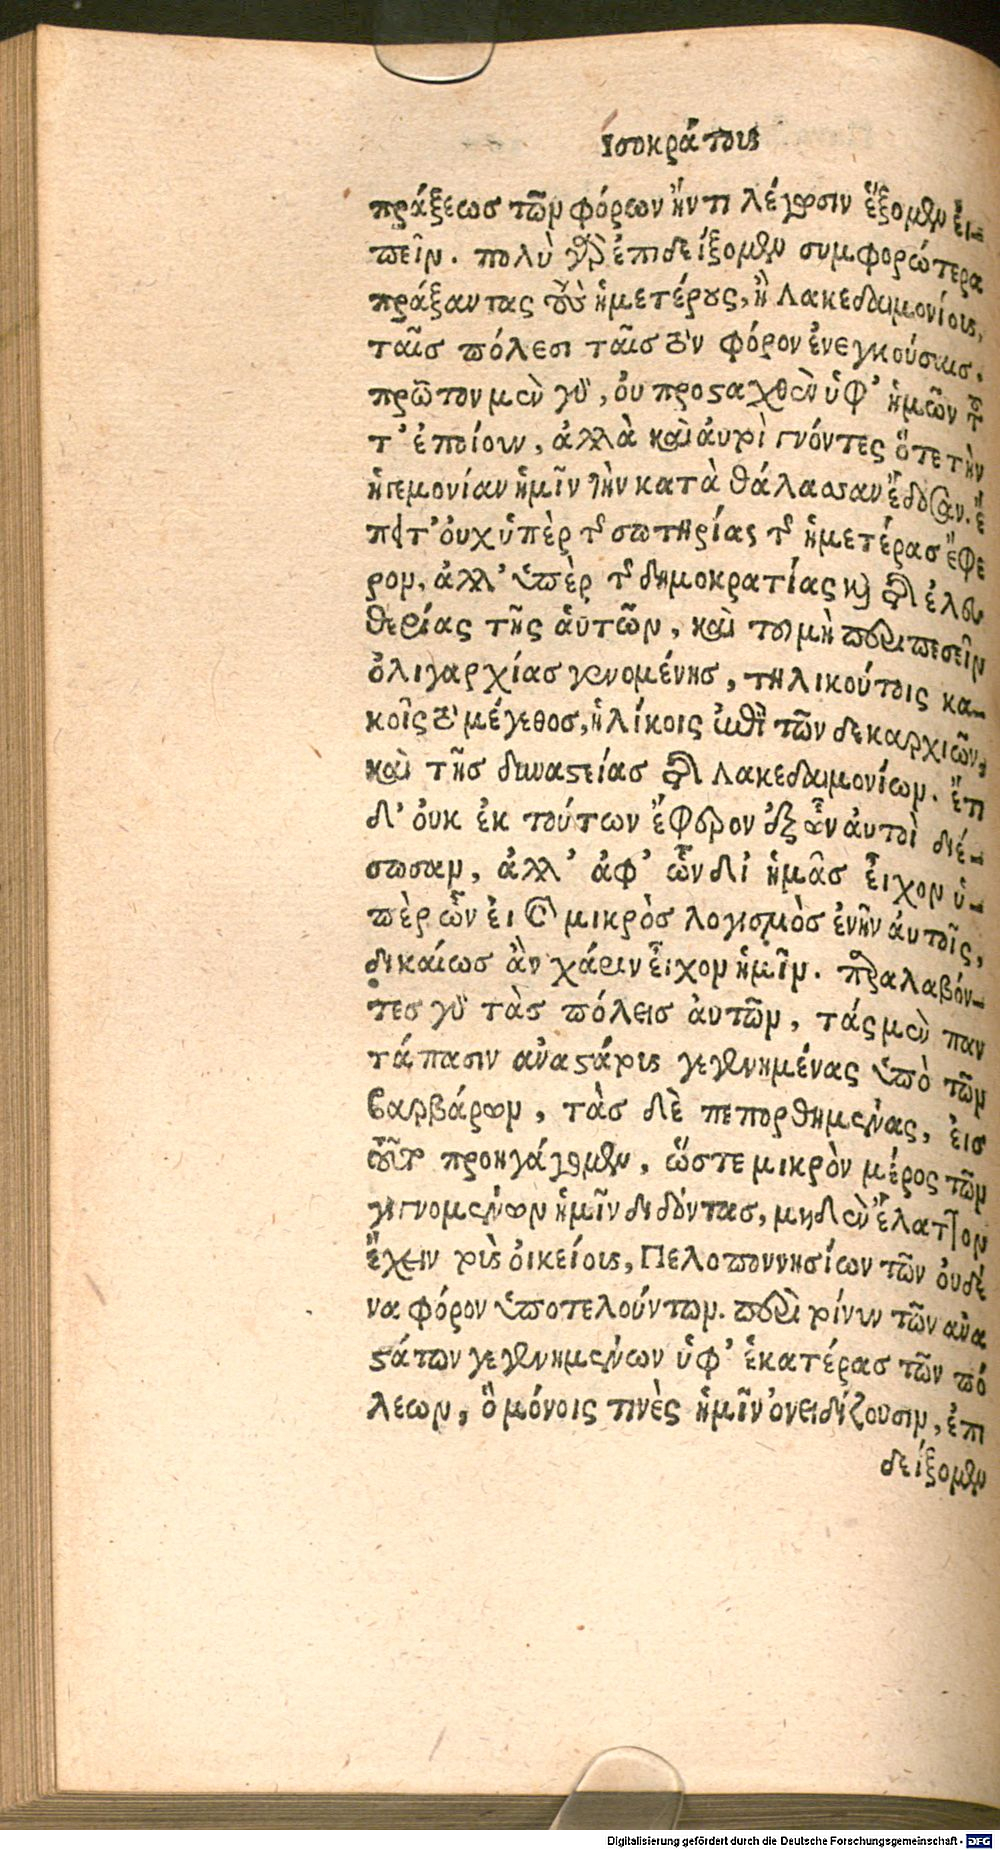 ἰσοκράτους
πράξεως τῶν φόρων ἤν τι λέγωσιν ἕξομεν εἰ-
πεῖν. πολὺ γὰρ ἐπιδείξομεν συμφορώτερα
πράξαντας τοὺς ἡμετέρους, ἢ Λακεδαιμονίους,
ταῖς πόλεσι ταῖς τὸν φόρον ἐνεγκούσαις.
πρῶτον μὲν γὰρ, οὐ προσαχθὲν ὑφ’ ἡμῶν
τ’ ἐποίουν, ἀλλὰ καὶ αὐτοὶ γνόντες ὅτε τὴν
ἡγεμονίαν ἡμῖν τὴν κατὰ θάλασσαν ἔδοσαν. ἔ
πειτ’ οὐχ ὑπὲρ τῆς σωτηρίας τῆς ἡμετέρας ἔφε
ρον, ἀλλ’ ὑπὲρ τῆς δημοκρατίας καὶ τῆς ἐλευ
θερίας τῆς αὑτῶν, καὶ τοῦ μὴ περιπεσεῖν
ὀλιγαρχίας γενομένης, τηλικούτοις κα-
κοῖς τὸ μέγεθος, ἡλίκοις ἐπὶ τῶν δεκαρχιῶν,
καὶ τῆς δυναστείας τῆς Λακεδαιμονίων. ἔτι
δ’ οὐκ ἐκ τούτων ἔφερον ἐξ ὧν αὐτοὶ διέ-
σωσαν, ἀλλ’ ἀφ’ ὧν δι’ ἡμᾶς εἶχον ὑ-
πὲρ ὧν εἰ καὶ μικρὸς λογισμὸς ἐνῆν αὐτοῖς,
δικαίως ἂν χάριν εἶχον ἡμῖν. παραλαβόν-
τες γὰρ τὰς πόλεις αὐτῶν, τάς μὲν παν
τάπασιν ἀναστάτους γεγενημένας ὑπὸ τῶν
βαρβάρων, τὰς δὲ πεπορθημένας, εἰς
τοῦτο προηγάγομεν, ὥστε μικρὸν μέρος τῶν
γιγνομένων ἡμῖν διδόντας, μηδὲν ἔλαττον
ἔχειν τοὺς οἰκείους, Πελοποννησίων τῶν οὐδέ
να φόρον ὑποτελούντων. περὶ τοίνυν τῶν ἀνα
στάτων γεγενημένων ὑφ’ ἑκατέρας τῶν πό
λεων, ὃ μόνοις τινὲς ἡμῖν ὀνειδίζουσιν, ἐπι
δείξομεν
Digitalisierung gefördert durch die Deutsche Forschungsgemeinschaft - DFG